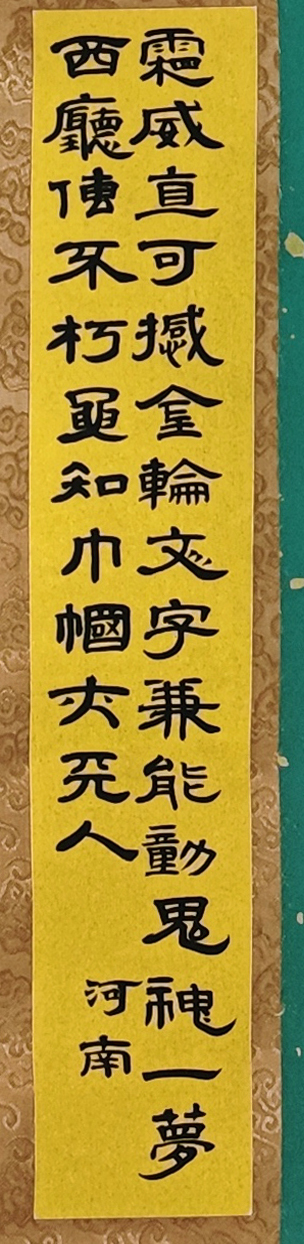 霜威直可撼金輪文字兼能動鬼神一夢
西廳傳不朽知巾幗人
河南